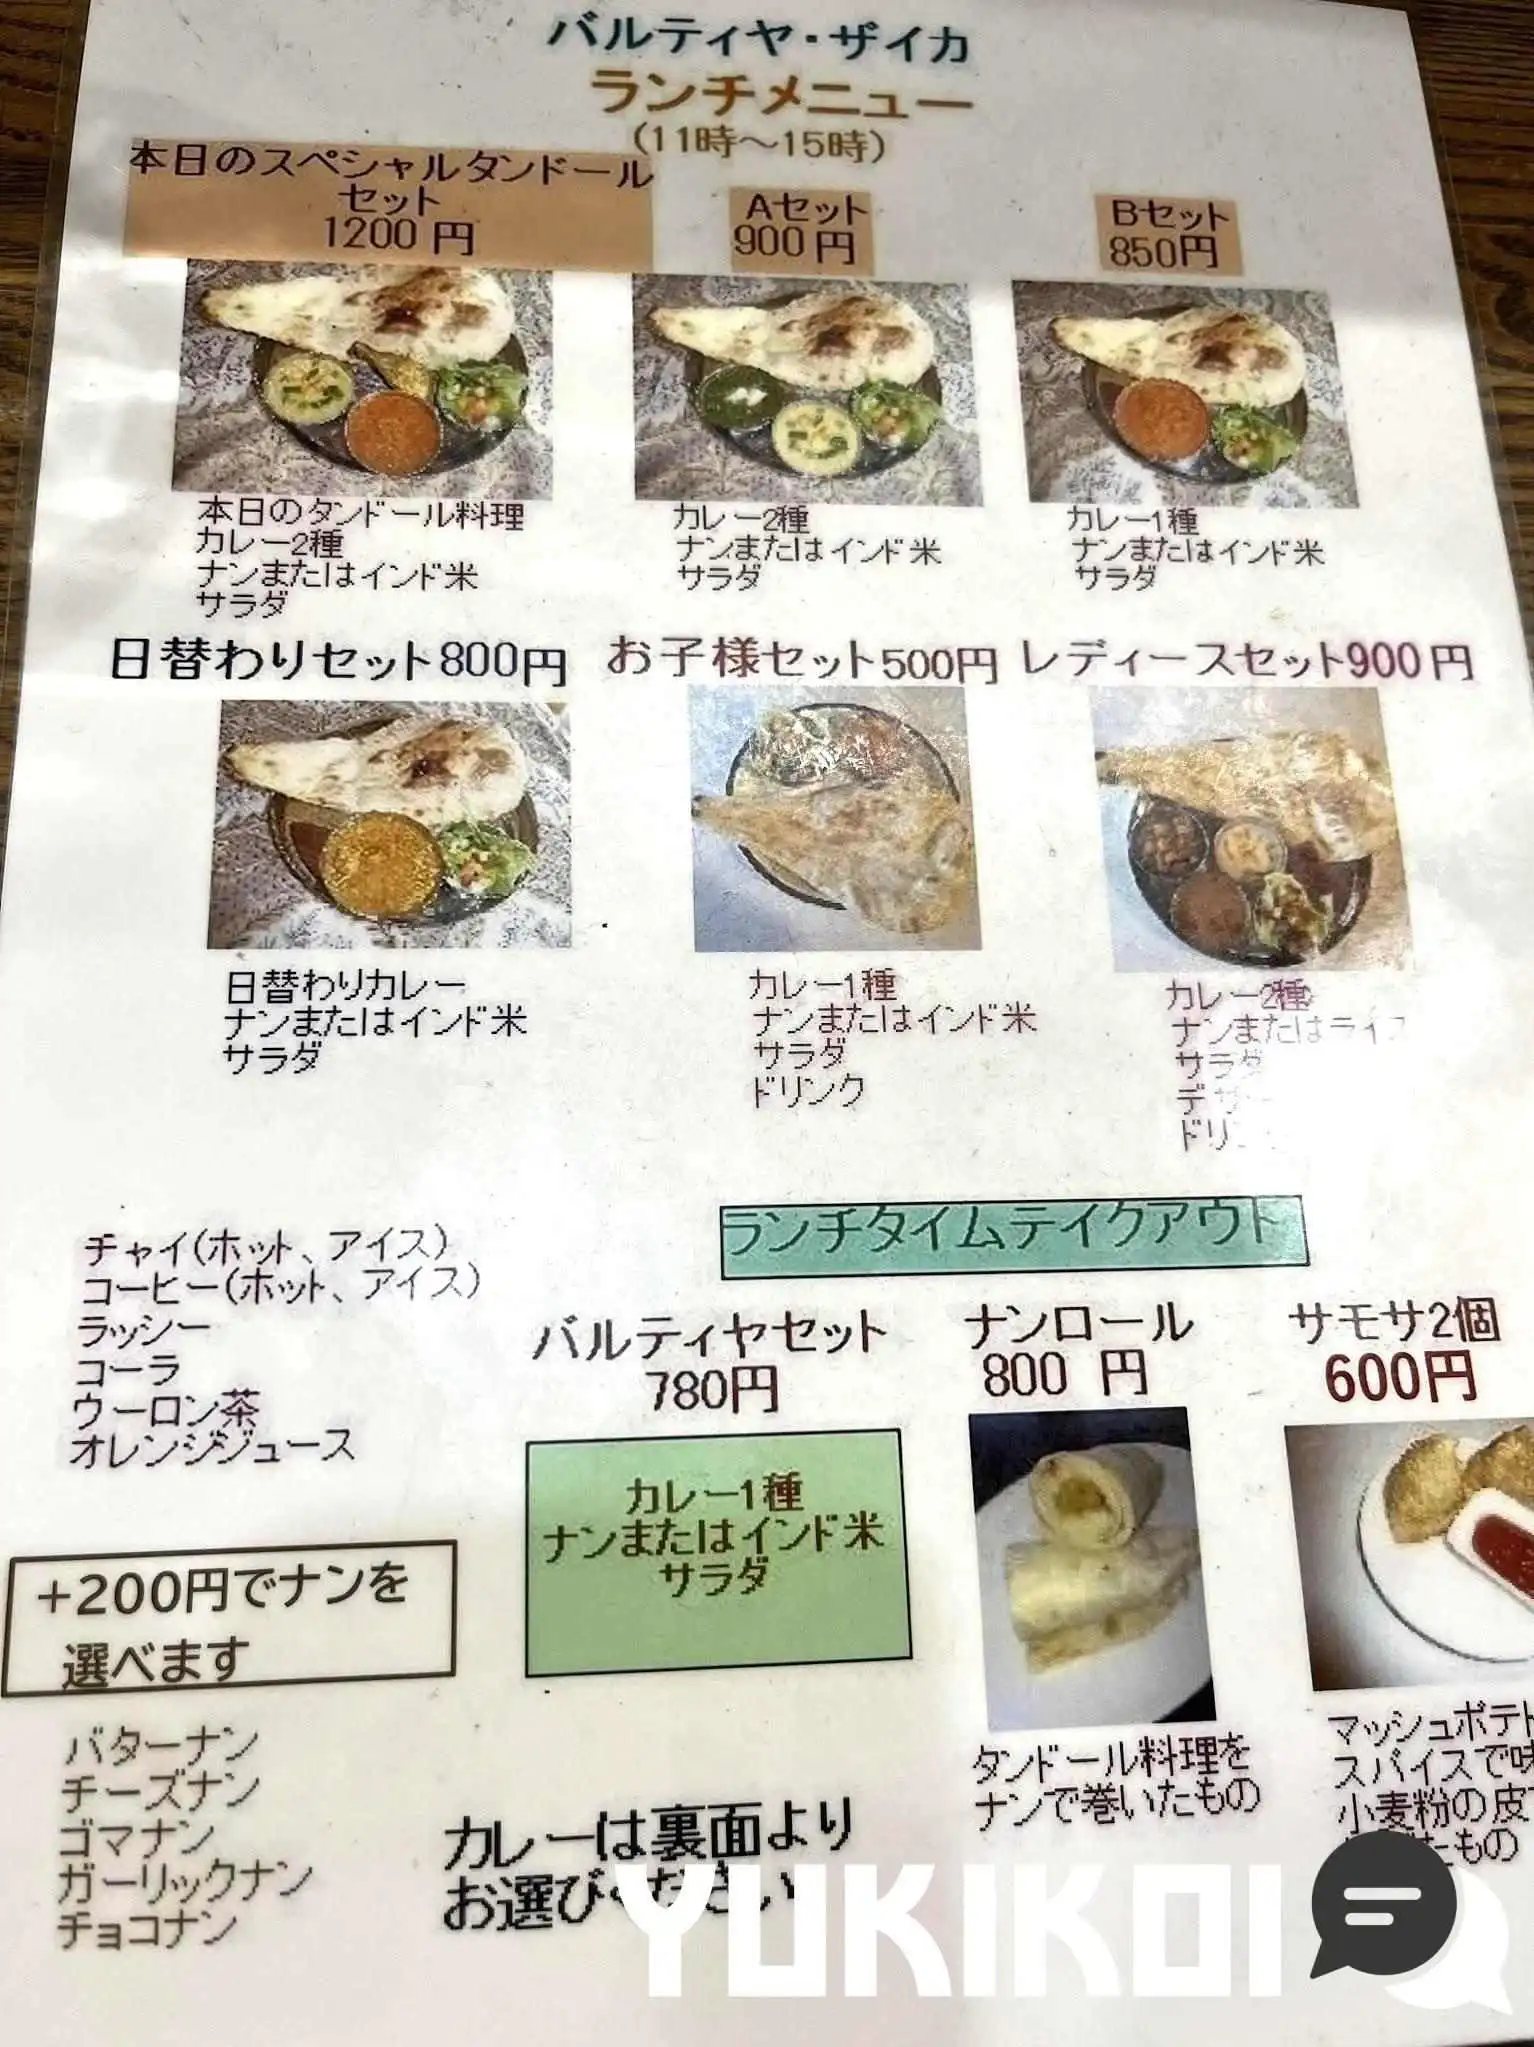 バルティヤ・ザイカ
ランチメニュー
(11時～15時)
本日のスペシャルタンドール
セット
1200 円
Aセット
900 円
Bセット
850円
本日のタンドール料理
カレー2種
ナンまたはインド米
サラダ
カレー2種
ナンまたはインド米
サラダ
カレー1種
ナンまたはインド米
サラダ
日替わりセット800円
お子様セット500円
レディースセット900円
日替わりカレー
ナンまたはインド米
サラダ
カレー1種
ナンまたはインド米
サラダ
ドリンク
カレー2種
ナンまたはライス
サラダ
チャイ(ホット、アイス)
コーヒー(ホット、アイス)
ラッシー
コーラ
ウーロン茶
オレンジジュース
ランチタイムテイクアウト
バルティヤセット
780円
カレー1種
ナンまたはインド米
サラダ
ナンロール
800 円
タンドール料理を
ナンで巻いたもの
サモサ2個
600円
マッシュポテト
スパイスで味
小麦粉の皮で
たもの
+200円でナンを
選べます
バターナン
チーズナン
ゴマナン
ガーリックナン
チョコナン
カレーは裏面より
お選びください
YUKIKOI